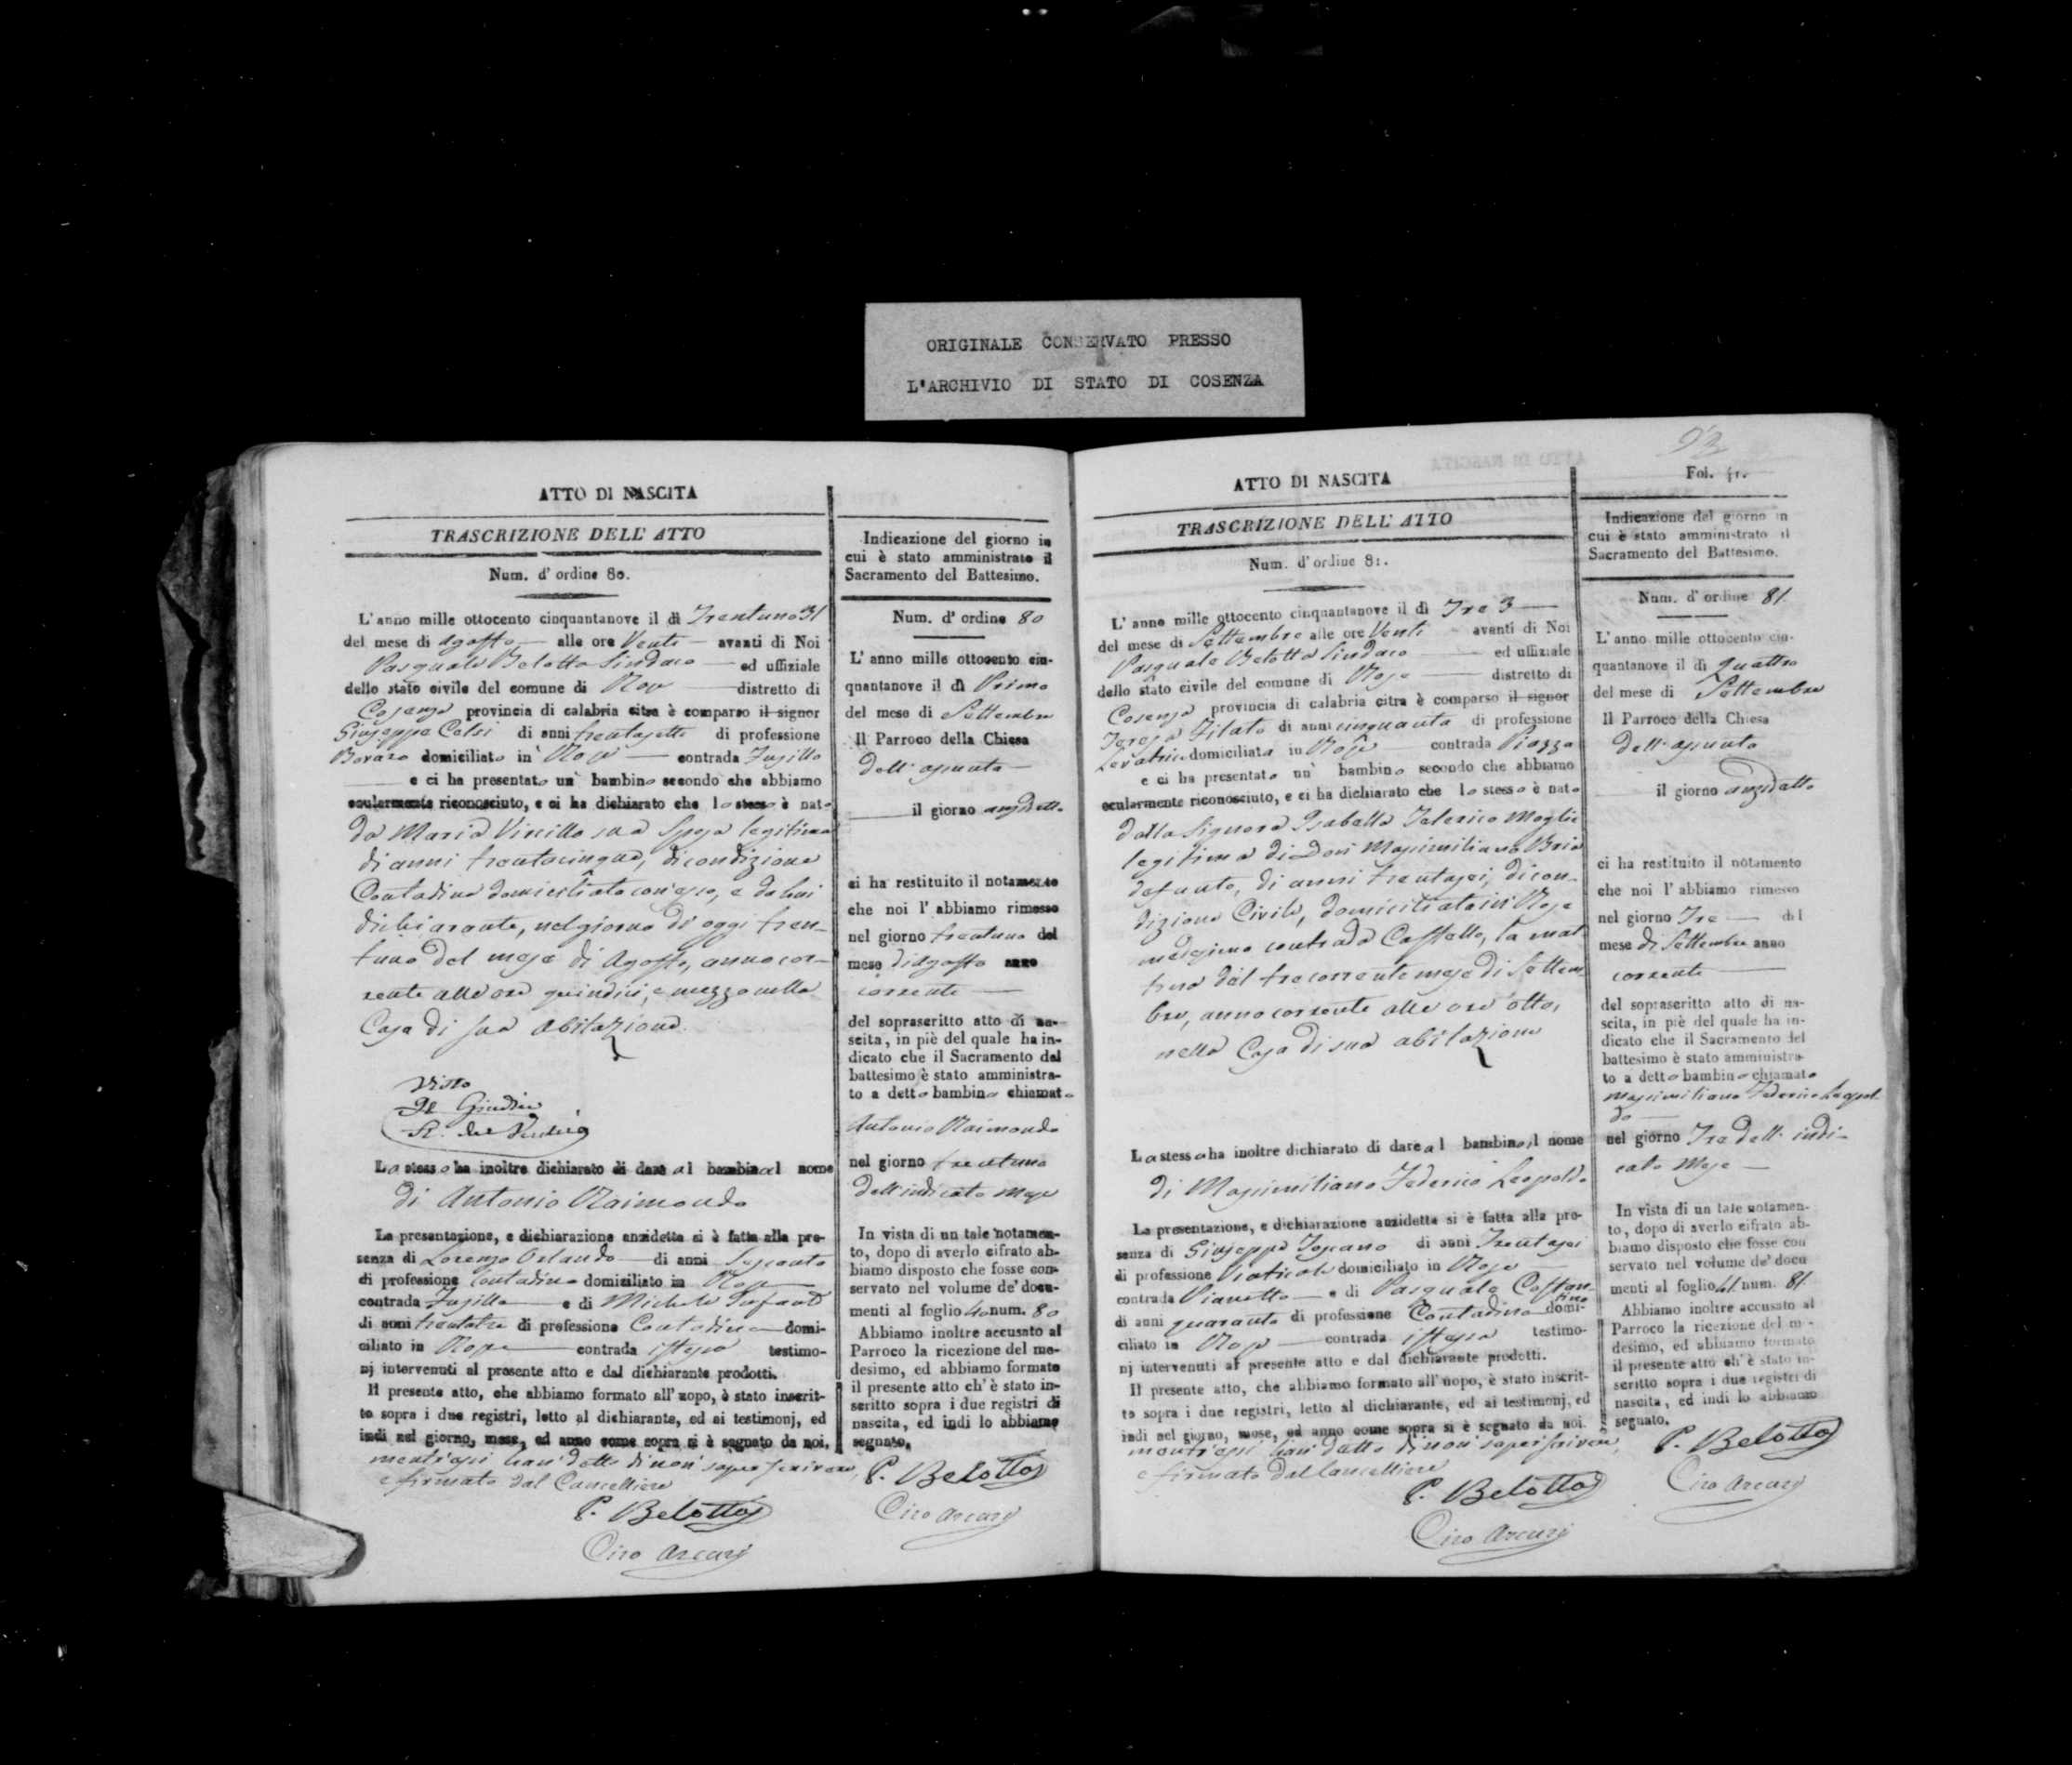 ORIGINALE CONSERVATO PRESSO
L'ARCHIVIO DI STATO DI COSENZA
ATTO DI NASCITA
TRASCRIZIONE DELL' ATTO
Num. d' ordine 80.
L'anno mille ottocento cinquantanove il dì Trentuno 31
del mese di Agosto alle ore Venti avanti di Noi
Pasquale Belotta Sindaco ed uffiziale
dello stato civile del comune di Rose distretto di
Cosenza provincia di calabria citra è comparso il signor
Giuseppe di anni trentasette di professione
domiciliato in Rose contrada
e ci ha presentato un bambino secondo che abbiamo
ocularmente riconosciuto, e ci ha dichiarato che lo stesso è nato
da Maria sua Sposa legittima
di anni trentacinque, di condizione
Contadina domiciliata con esso, e da lui
dichiarante, nel giorno di oggi tren-
tuno del mese di Agosto, anno cor-
rente alle ore quindici, e mezzo nella
Casa di sua abitazione
Visto
Il Giudice
Lo stesso ha inoltre dichiarato di dare al bambino il nome
di Antonio Raimondo
La presentazione, e dichiarazione anzidetta si è fatta alla pre-
senza di Lorenzo Orlando di anni Sessanta
di professione Contadino domiciliato in Rose
contrada e di Michele
di anni trentatre di professione Contadino domi-
ciliato in Rose contrada istessa testimo-
nj intervenuti al presente atto e dal dichiarante prodotti.
Il presente atto, che abbiamo formato all'uopo, è stato inscrit-
to sopra i due registri, letto al dichiarante, ed ai testimonj, ed
indi nel giorno, mese, ed anno come sopra si è segnato da noi,
mentr'essi han detto di non saper scrivere,
e firmato dal Cancelliere
P. Belotta
Ciro Arcuri
Indicazione del giorno in
cui è stato amministrato il
Sacramento del Battesimo.
Num. d' ordine 80
L' anno mille ottocento cin-
quantanove il dì Primo
del mese di Settembre
Il Parroco della Chiesa
dell'assunta
il giorno anzidetto
ci ha restituito il notamento
che noi l' abbiamo rimesso
nel giorno trentuno del
mese di Agosto anno
corrente
del sopraseritto atto di na-
scita, in piè del quale ha in-
dicato che il Sacramento del
battesimo è stato amministra-
to a detto bambino chiamato
Antonio Raimondo
nel giorno trentuno
dell'indicato mese
In vista di un tale notamen-
to, dopo di averlo cifrato ab-
biamo disposto che fosse con-
servato nel volume de' docu-
menti al foglio 40 num. 80
Abbiamo inoltre accusato al
Parroco la ricezione del me-
desimo, ed abbiamo formato
il presente atto ch' è stato in-
scritto sopra i due registri di
nascita, ed indi lo abbiamo
segnato.
P. Belotta
Ciro Arcuri
ATTO DI NASCITA
TRASCRIZIONE DELL' ATTO
Num. d' ordine 81.
L' anno mille ottocento cinquantanove il dì Tre 3
del mese di Settembre alle ore Venti avanti di Noi
Pasquale Belotta Sindaco ed uffiziale
dello stato civile del comune di Rose distretto di
Cosenza provincia di calabria citra è comparso il signor
Teresa Filato di anni cinquanta di professione
Levatrice domiciliata in Rose contrada Piazza
e ci ha presentato un bambino secondo che abbiamo
ocularmente riconosciuto, e ci ha dichiarato che lo stesso è nato
dalla Signora Isabella Telerico Moglie
legittima di Don Massimiliano
defunto, di anni trentasei, di con-
dizione Civile, domiciliata in Rose
medesimo contrada Castello, la mat-
tina del tre corrente mese di Settem
bre, anno corrente alle ore otto,
nella Casa di sua abitazione
La stessa ha inoltre dichiarato di dare al bambino il nome
di Massimiliano Federico Leopoldo
La presentazione, e dichiarazione anzidetta si è fatta alla pre-
senza di Giuseppe Toscano di anni Trentasei
di professione domiciliato in Rose
contrada Pianetto e di Pasquale Costan-
tino
di anni quaranta di professione Contadino domi-
ciliato in Rose contrada istessa testimo-
nj intervenuti al presente atto e dal dichiarante prodotti.
Il presente atto, che abbiamo formato all'uopo, è stato inscrit-
to sopra i due registri, letto al dichiarante, ed ai testimonj, ed
indi nel giorno, mese, ed anno come sopra si è segnato da noi.
mentr'essi han detto di non saper scrivere,
e firmato dal Cancelliere
P. Belotta
Ciro Arcuri
Fol. 41.
Indicazione del giorno in
cui è stato amministrato il
Sacramento del Battesimo.
Num. d' ordine 81
L' anno mille ottocento cin-
quantanove il dì quattro
del mese di Settembre
Il Parroco della Chiesa
dell'assunta
il giorno anzidetto
ci ha restituito il notamento
che noi l' abbiamo rimesso
nel giorno Tre del
mese di Settembre anno
corrente
del sopraseritto atto di na-
scita, in piè del quale ha in-
dicato che il Sacramento del
battesimo è stato amministra-
to a detto bambino chiamato
Massimiliano Federico Leopol
do
nel giorno Tre dell' indi-
cato Mese
In vista di un tale notamen-
to, dopo di averlo cifrato ab-
biamo disposto che fosse con
servato nel volume de' docu
menti al foglio 41 num. 81
Abbiamo inoltre accusato al
Parroco la ricezione del me-
desimo, ed abbiamo formato
il presente atto ch' è stato in-
scritto sopra i due registri di
nascita, ed indi lo abbiamo
segnato.
P. Belotta
Ciro Arcuri